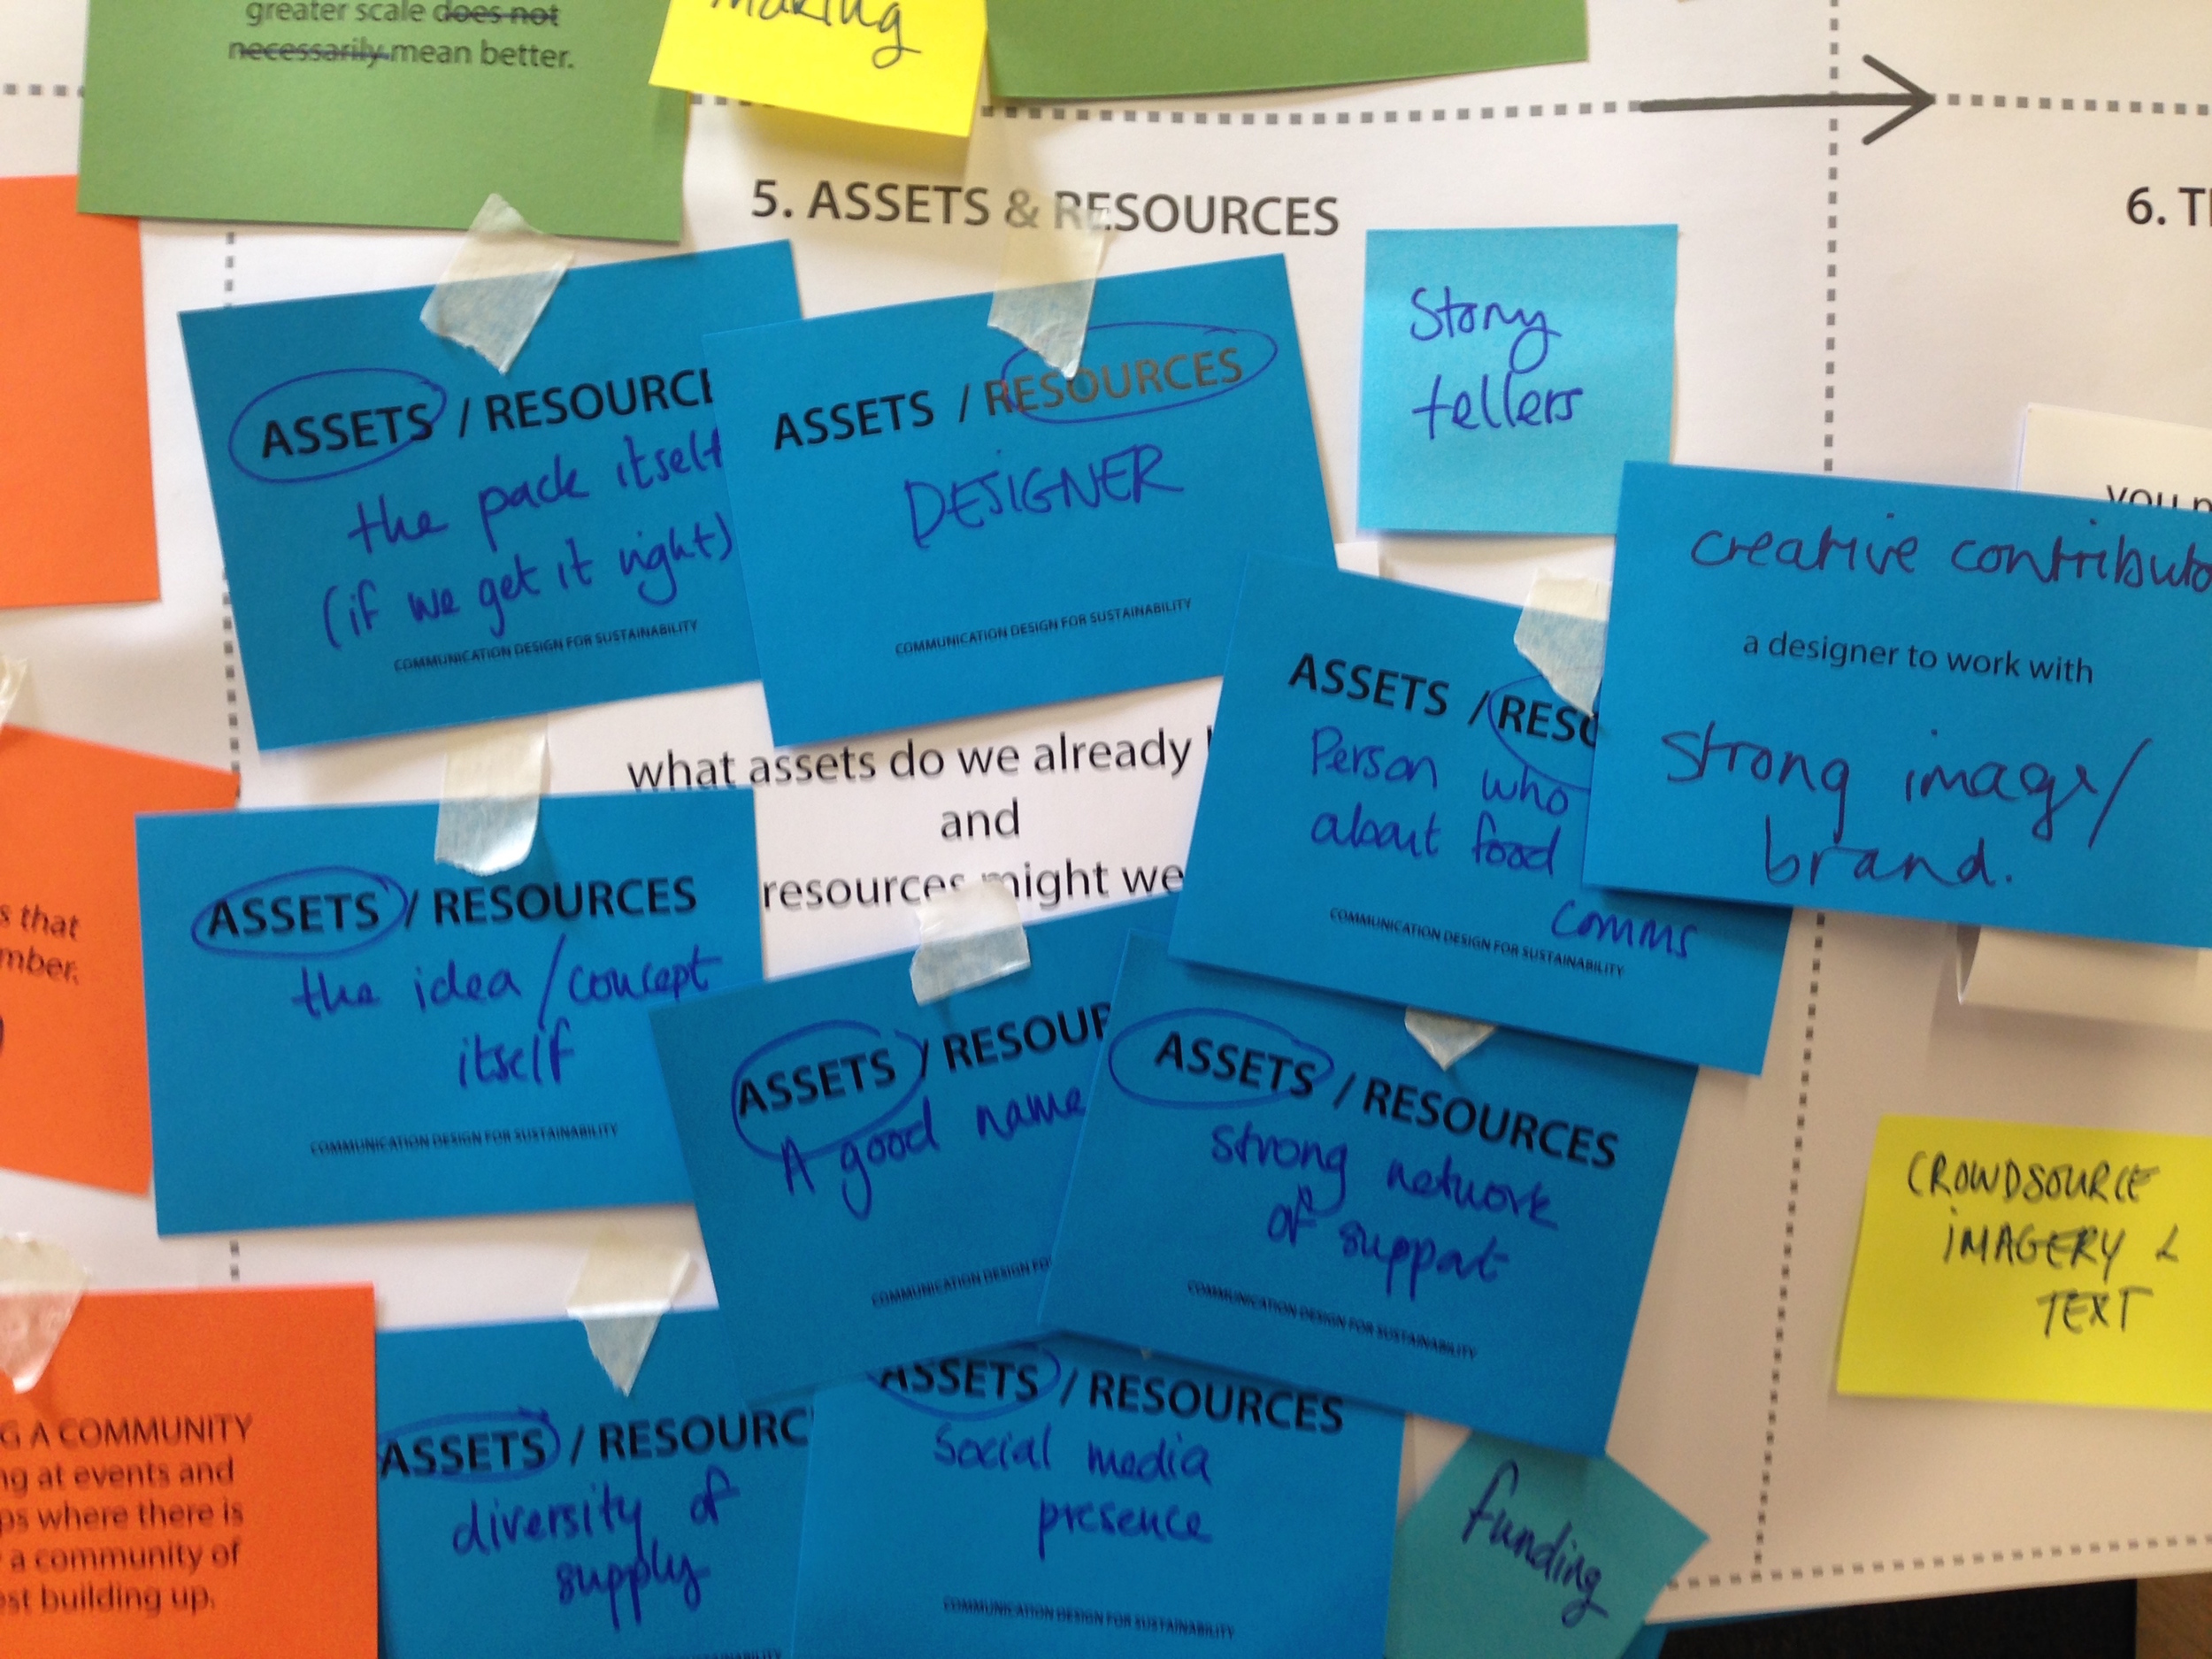 greater scale does not
necessarily mean better.
making
5. ASSETS & RESOURCES
6. T
ASSETS / RESOURCE
the pack itself
(if we get it right)
COMMUNICATION DESIGN FOR SUSTAINABILITY
ASSETS / RESOURCES
DESIGNER
COMMUNICATION DESIGN FOR SUSTAINABILITY
Story
tellers
you
creative contributo
a designer to work with
strong image/
brand.
what assets do we already
and
resources might we
ASSETS / RESO
Person who
about food
comms
COMMUNICATION DESIGN FOR SUSTAINABILITY
ASSETS / RESOURCES
the idea/concept
itself
COMMUNICATION DESIGN FOR SUSTAINABILITY
s that
mber.
ASSETS / RESOUR
A good name
COMMUNICATION DESIGN FO
ASSETS / RESOURCES
strong network
of support
COMMUNICATION DESIGN FOR SUSTAINABILITY
CROWDSOURCE
IMAGERY &
TEXT
G A COMMUNITY
ng at events and
ps where there is
a community of
est building up.
ASSETS / RESOURC
diversity of
supply
SUSTAINABILITY
ASSETS / RESOURCES
Social media
presence
COMMUNICATION DESIGN FOR SUSTAINABILITY
funding